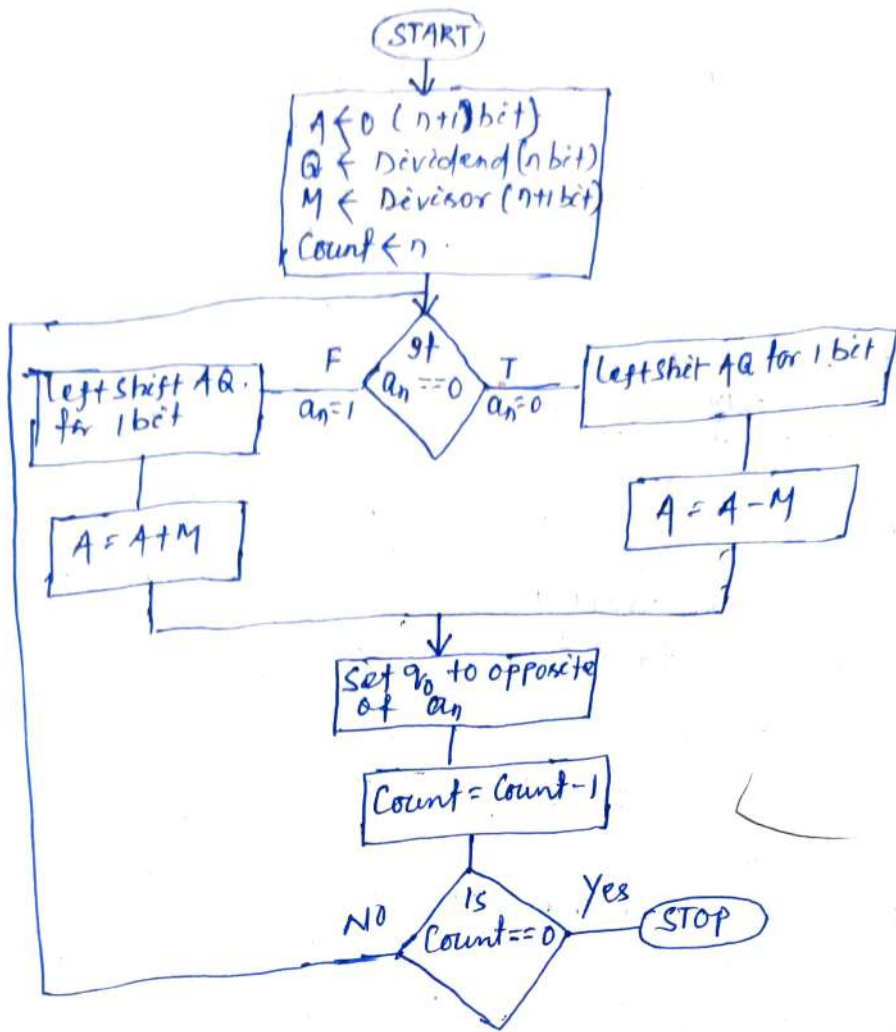 START
A ← 0 (n+1) bit)
Q ← Dividend (n bit)
M ← Divisor (n+1 bit)
Count ← n.
If
an == 0
F
an=1
T
an=0
Left Shift AQ.
for 1 bit
Left Shit AQ for 1 bit
A = A+M
A = A-M
Set q0 to opposite
of an
Count = Count-1
Is
Count == 0
NO
Yes
STOP